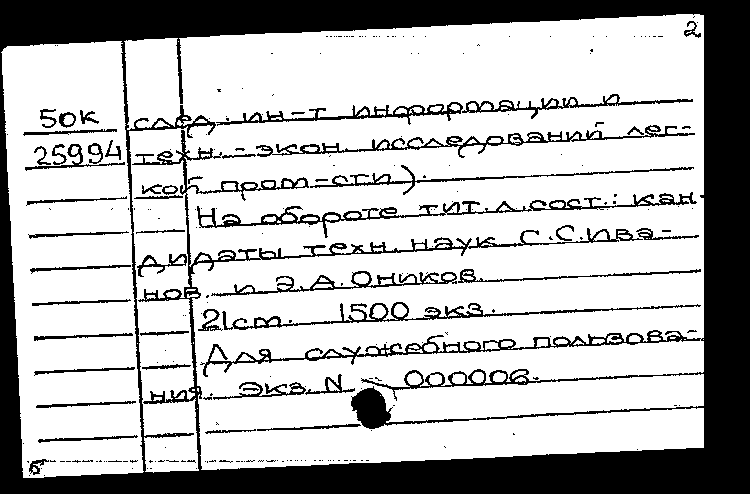 2
50к след. ин-т информации и
25994 техн.-экон. исследований лег-
кой пром-сти).
На обороте тит.л.сост.: кан-
дидаты техн. наук С.С.Ива-
нов и Э.А.Оников.
21см. 1500 экз.
Для служебного пользова-
ния. экз. N – 000006.
б